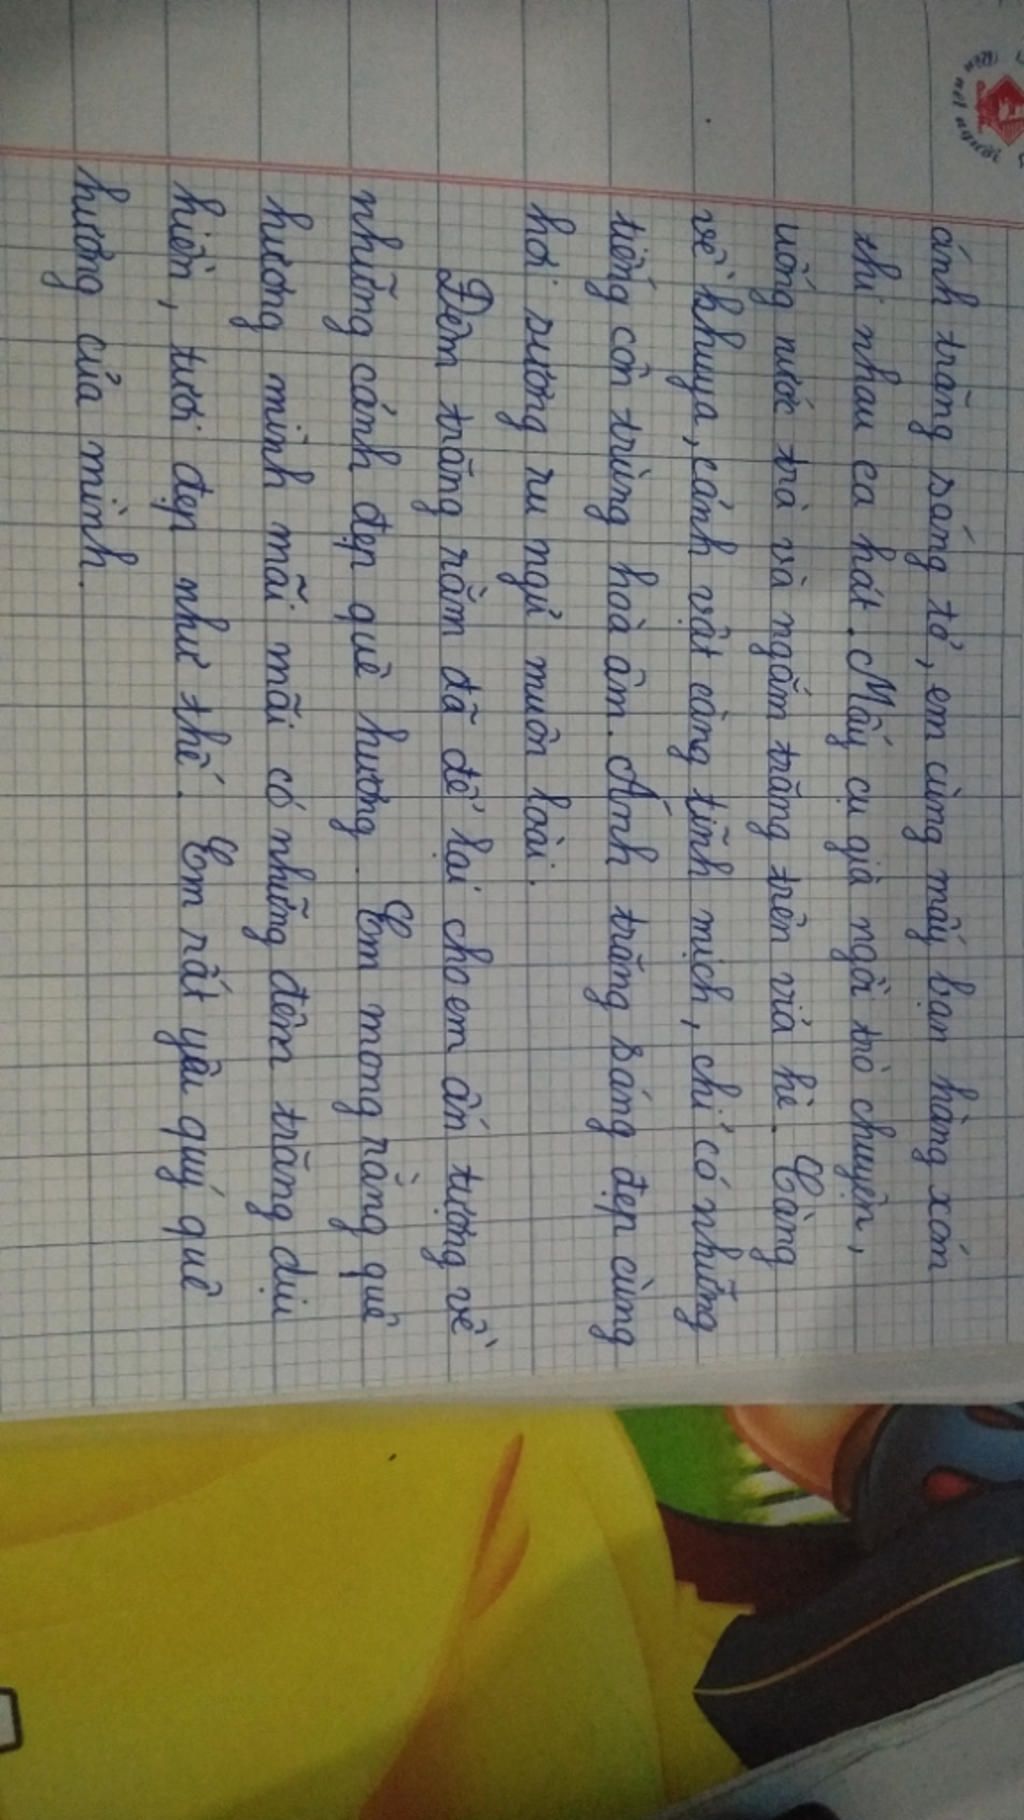 nét người
ánh trăng sáng tỏ, em cùng mấy bạn hàng xóm
thi nhau ca hát. Mấy cụ già ngồi trò chuyện,
uống nước trà và ngắm trăng trên vỉa hè. Càng
về khuya, cảnh vật càng tĩnh mịch, chỉ có những
tiếng côn trùng hoà âm. Ánh trăng sáng đẹp cùng
hơi sương ru ngủ muôn loài.
Đêm trăng rằm đã để lại cho em ấn tượng về
những cảnh đẹp quê hương. Em mong rằng quê
hương mình mãi mãi có những đêm trăng dịu
hiền, tươi đẹp như thế. Em rất yêu quý quê
hương của mình.